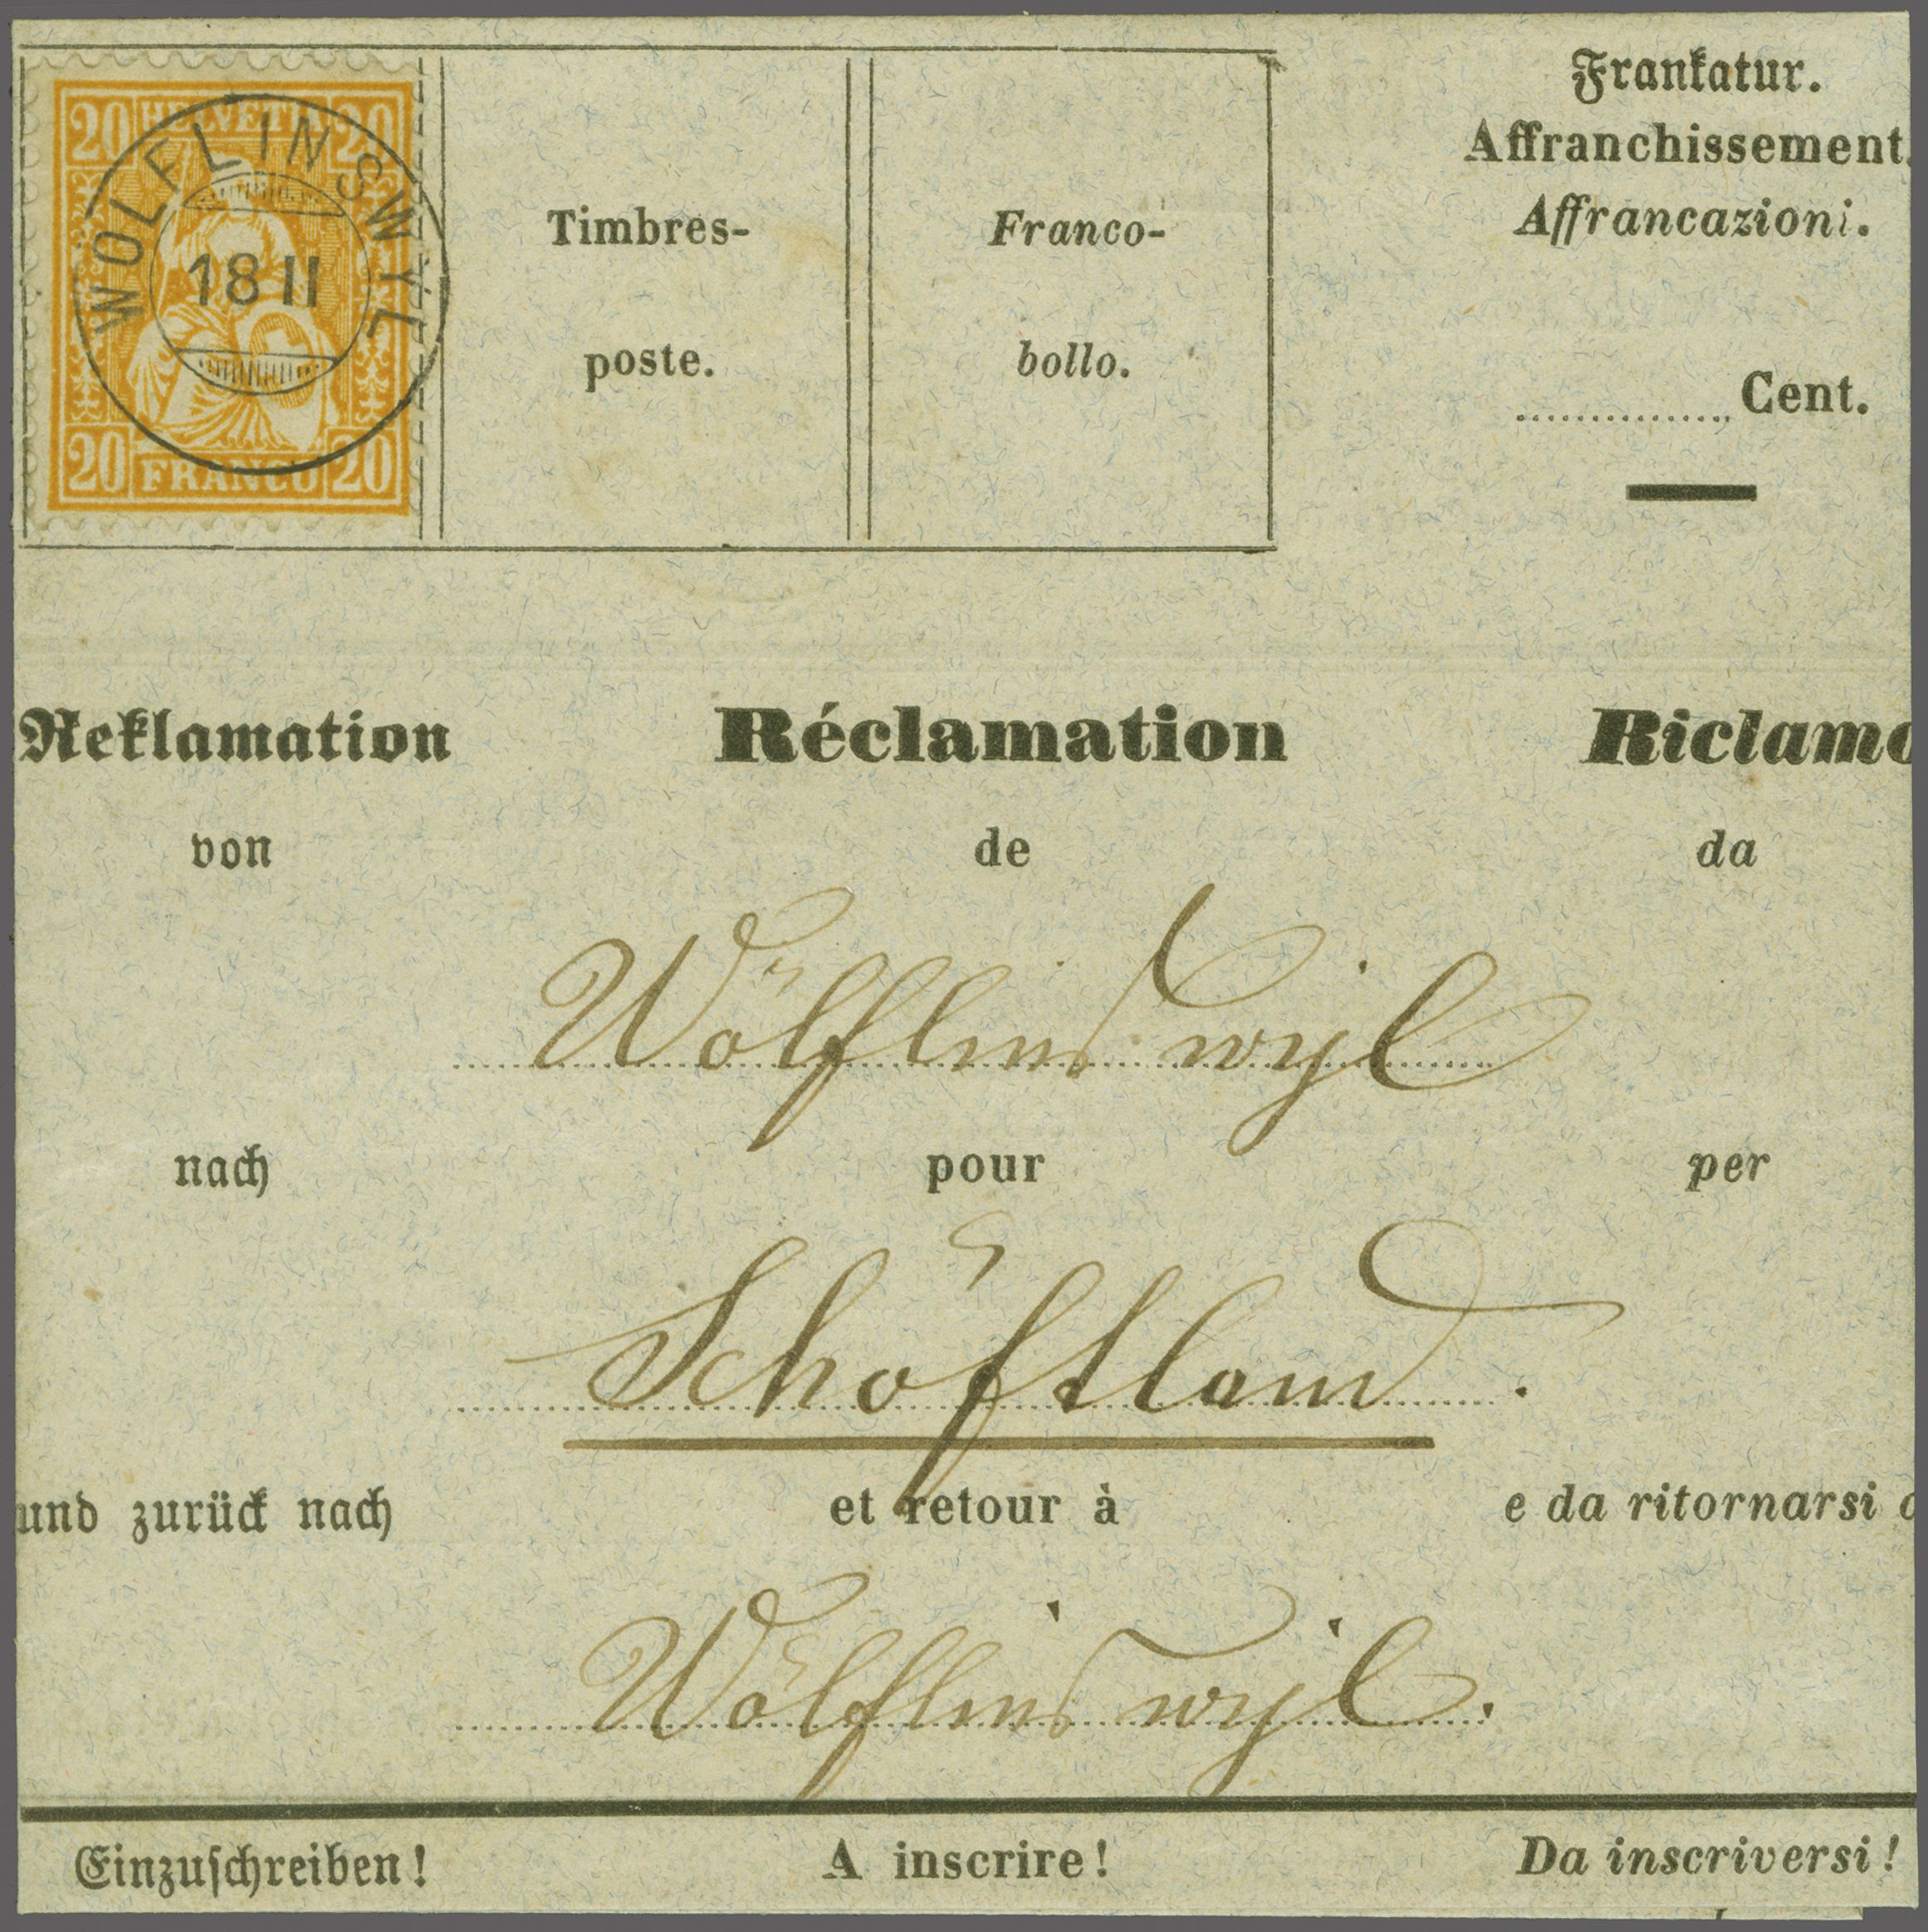 20 HELVETIA 20
WÖLFLINSWYL
18 II
20 FRANCO 20
Timbres-
poste.
Franco-
bollo.
Frankatur.
Affranchissement.
Affrancazioni.
Cent.
Reklamation Réclamation Riclamo
von de da
Wölflinswyl
nach pour per
Schöftland.
und zurück nach et retour à e da ritornarsi a
Wölflinswyl.
Einzuschreiben! A inscrire! Da inscriversi!